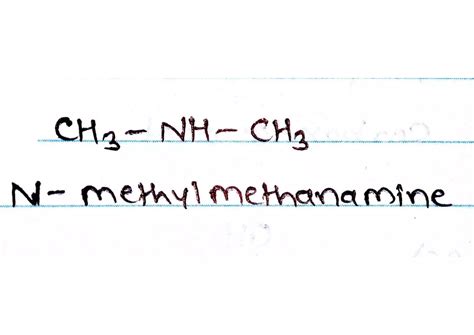 CH₃ – NH – CH₃
N- methylmethanamine